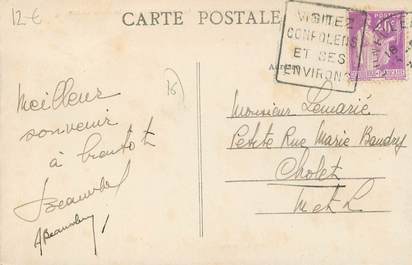 12-€
CARTE POSTALE
VISITEZ
CONFOLENS
ET SES
ENVIRONS
16
Meilleur
souvenir
à bientot
Monsieur Lemarié
Petite Rue Marie Baudry
Cholet
M et L